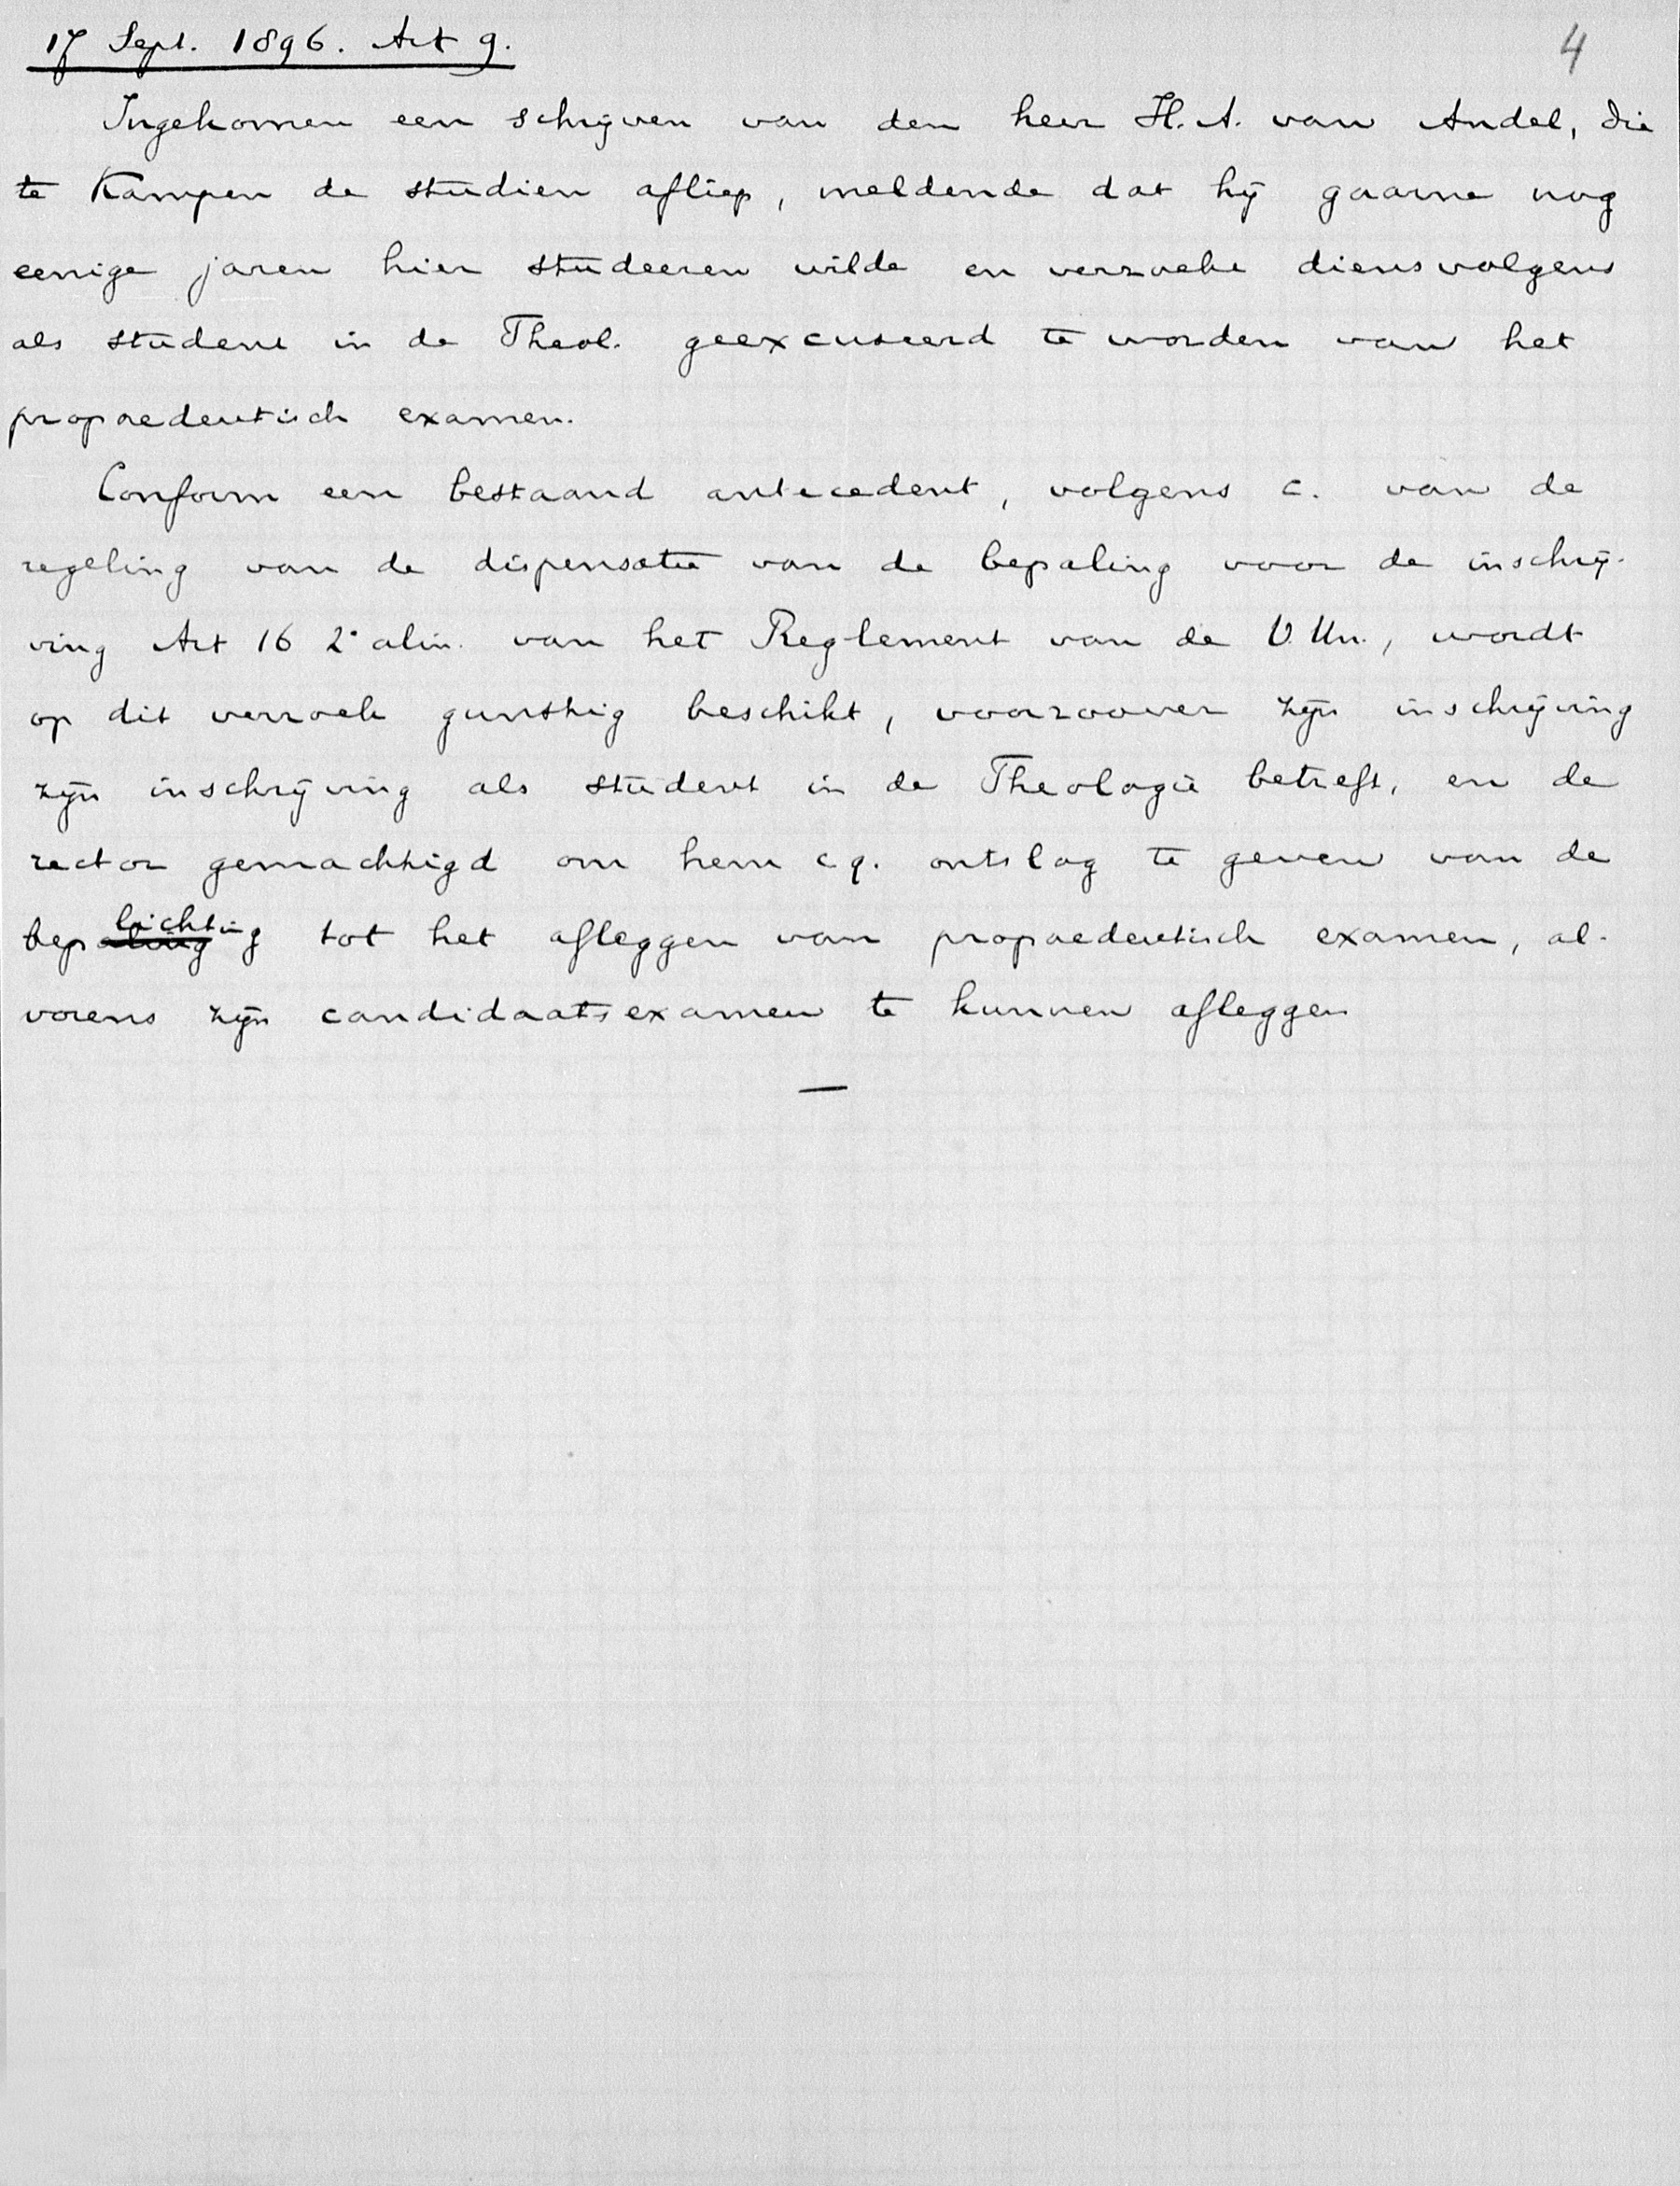 17 Sept. 1896. Art 9.
4
Ingekomen een schrijven van den heer H. A. van Andel, die
te Kampen de studien afliep, meldende dat hij gaarne nog
eenige jaren hier studeeren wilde en verzoekt diensvolgens
als student in de Theol. geexcuseerd te worden van het
propaedeutisch examen.
Conform een bestaand antecedent, volgens c. van de
regeling van de dispensatie van de bepaling voor de inschrij-
ving Art 16 2e alin. van het Reglement van de V. Un., wordt
op dit verzoek gunstig beschikt, voorzoover zijn inschrijving
zijn inschrijving als student in de Theologie betreft, en de
rector gemachtigd om hem c.q. ontslag te geven van de
bepaling lichting tot het afleggen van propaedeutisch examen, al-
vorens zijn candidaatsexamen te kunnen afleggen
—